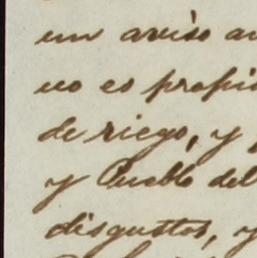 un aviso a
no es propi
de riego, y
y Pueblo del
disgustos, y